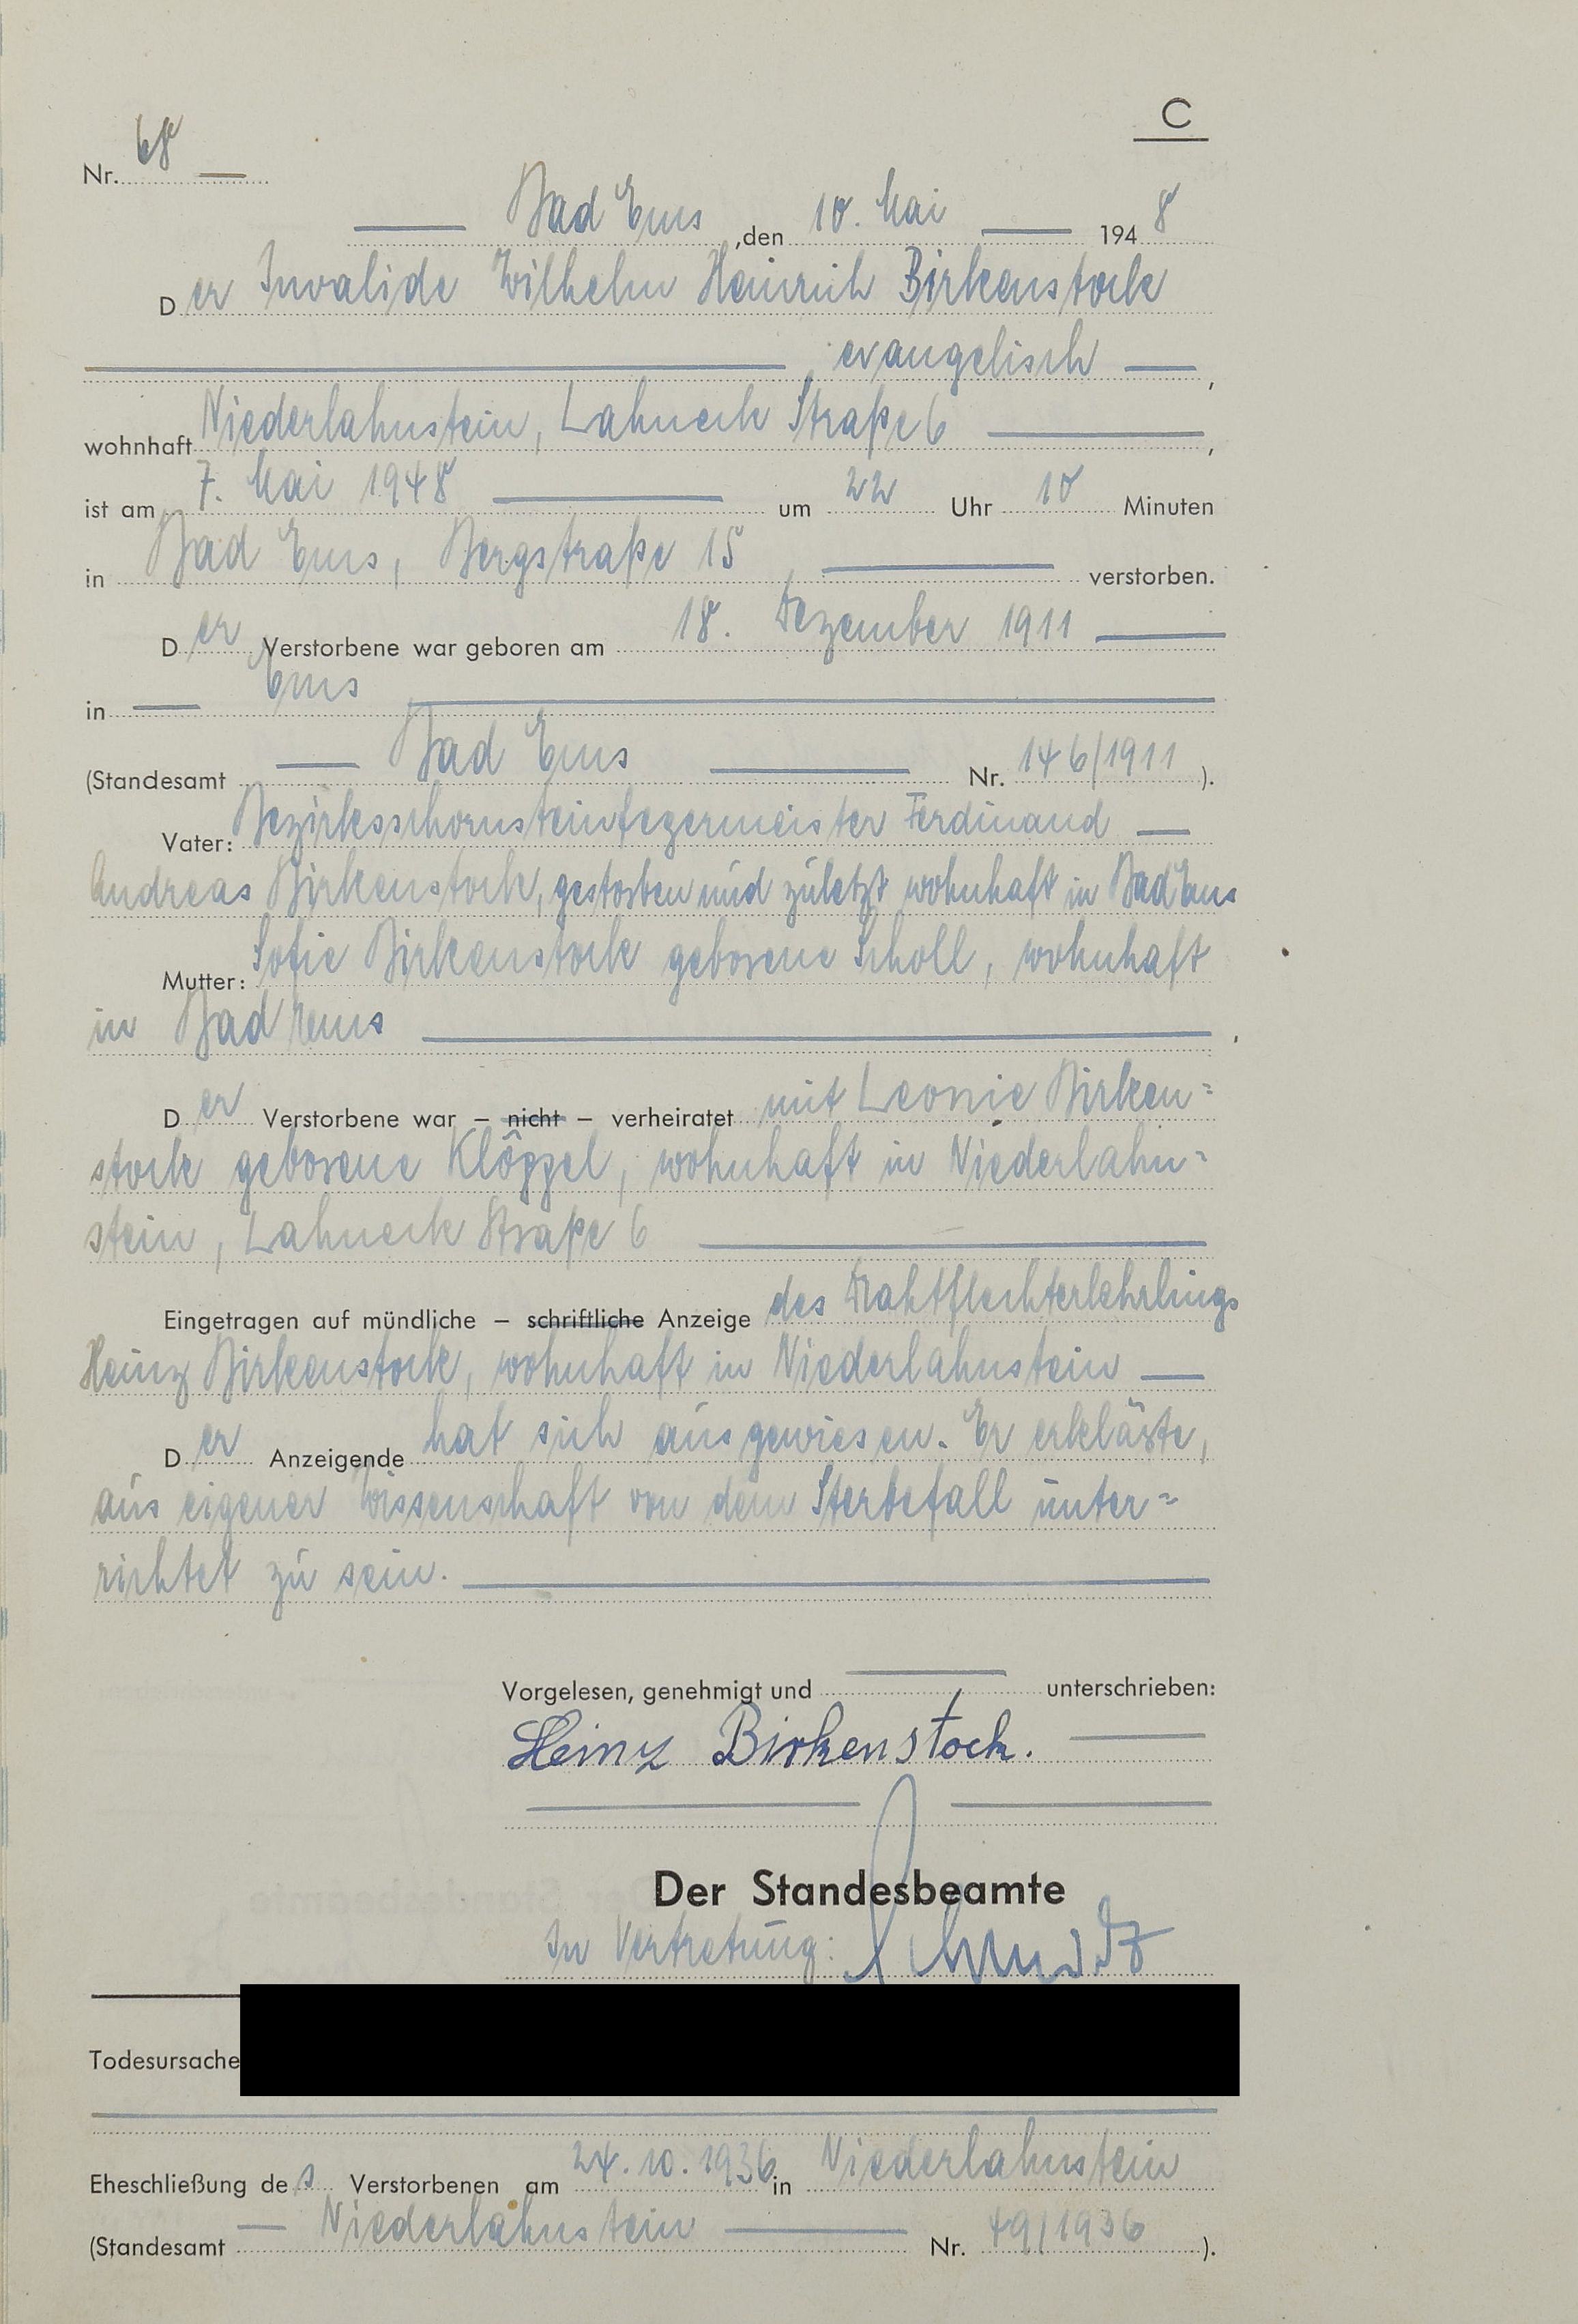 C
Nr. 68
Bad Ems, den 10. Mai 1948
Der Invalide Wilhelm Heinrich Birkenstock
evangelisch,
wohnhaft Niederlahnstein, Lahneck Straße 6,
ist am 7. Mai 1948 um 22 Uhr 10 Minuten
in Bad Ems, Bergstraße 15 verstorben.
Der Verstorbene war geboren am 18. Dezember 1911
in Ems
(Standesamt Bad Ems Nr. 146/1911).
Vater: Bezirksschornsteinfegermeister Ferdinand
Andreas Birkenstock, gestorben und zuletzt wohnhaft in Bad Ems
Mutter: Sofie Birkenstock geborene Scholl, wohnhaft
in Bad Ems.
Der Verstorbene war – nicht – verheiratet mit Leonie Birken=
stock geborene Klöppel, wohnhaft in Niederlahn=
stein, Lahneck Straße 6
Eingetragen auf mündliche – schriftliche Anzeige des Drahtflechterlehrlings
Heinz Birkenstock, wohnhaft in Niederlahnstein
Der Anzeigende hat sich ausgewiesen. Er erklärte,
aus eigener Wissenschaft von dem Sterbefall unter=
richtet zu sein.
Vorgelesen, genehmigt und unterschrieben:
Heinz Birkenstock.
Der Standesbeamte
In Vertretung:
Todesursache
Eheschließung des Verstorbenen am 24.10.1936 in Niederlahnstein
(Standesamt Niederlahnstein Nr. 49/1936).